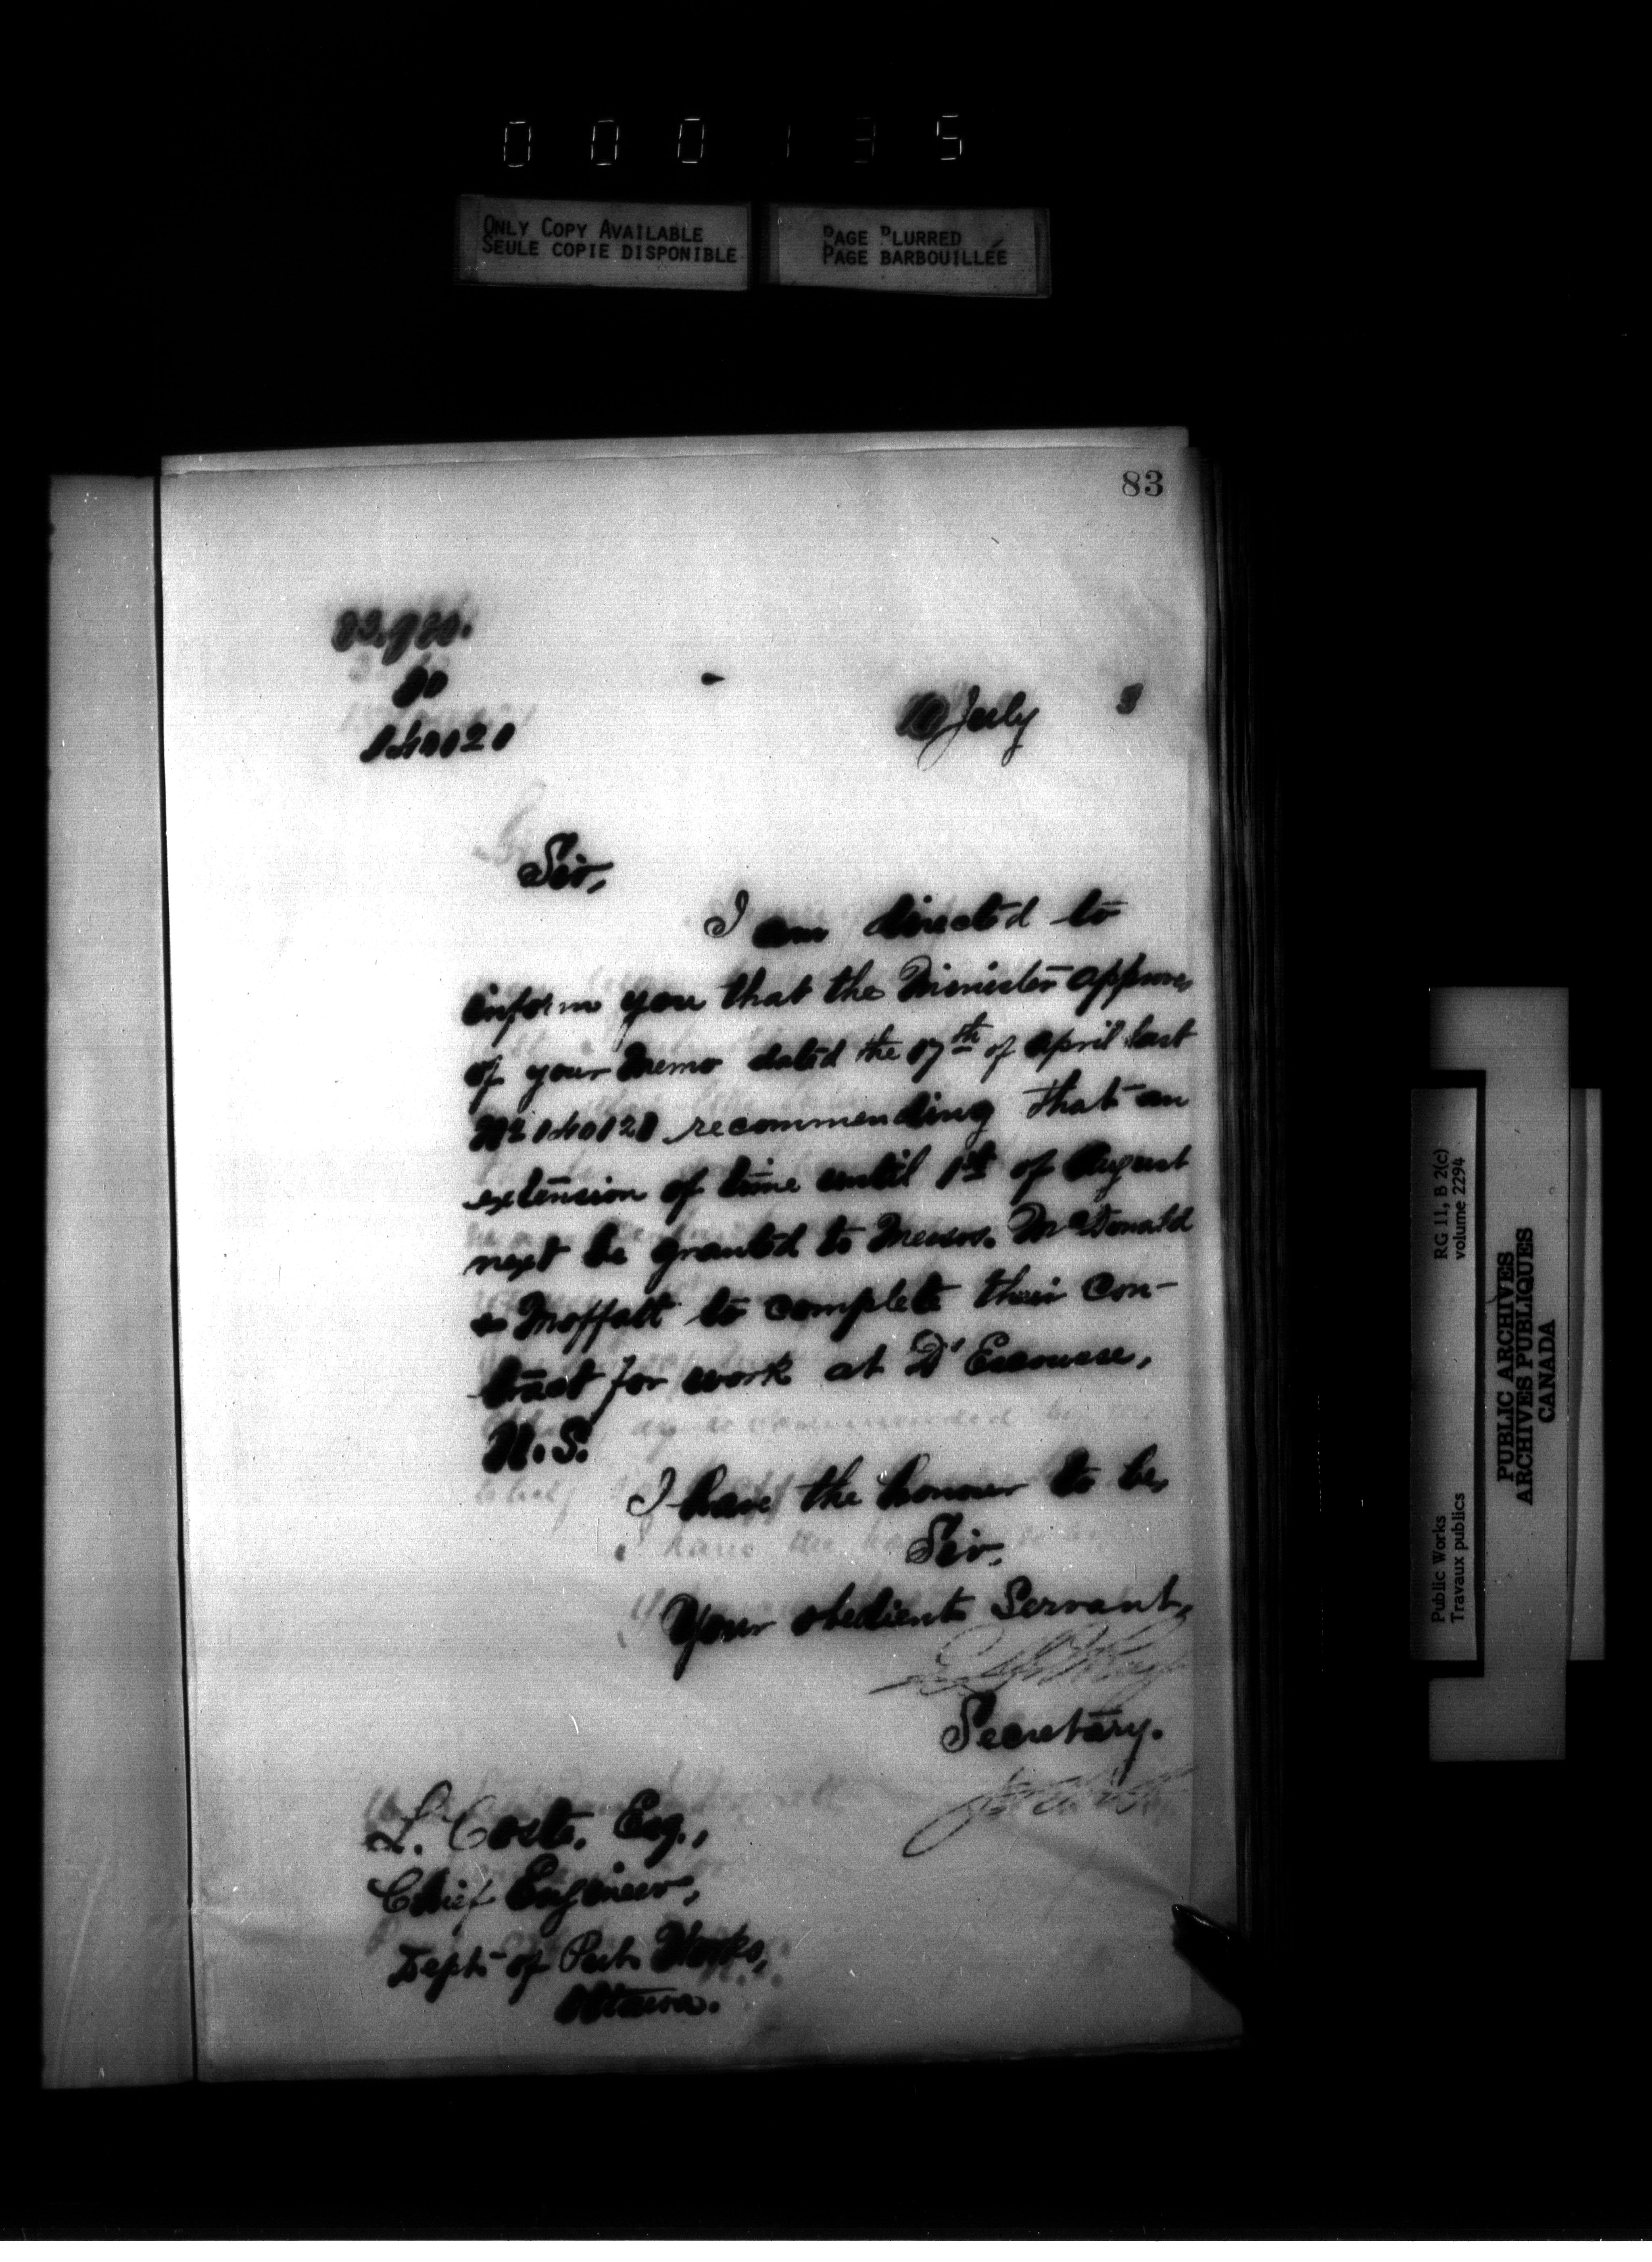 000135
ONLY COPY AVAILABLE
SEULE COPIE DISPONIBLE
PAGE BLURRED
PAGE BARBOUILLÉE
83
July 3
Sir,
I am directed to
inform you that the Minister approves
of your Memo dated the 17th of April last
recommending that an
extension of time until 1st of August
next be granted to Messrs. McDonald
& Moffatt to complete their con-
tract for work at D'Escousse,
N.S.
I have the honour to be,
Sir,
Your obedient Servant,
Secretary.
L. Coste, Esq.,
Chief Engineer,
Dept. of Pub. Works,
Ottawa.
Public Works
Travaux publics
RG 11, B 2(c)
volume 2294
PUBLIC ARCHIVES
ARCHIVES PUBLIQUES
CANADA